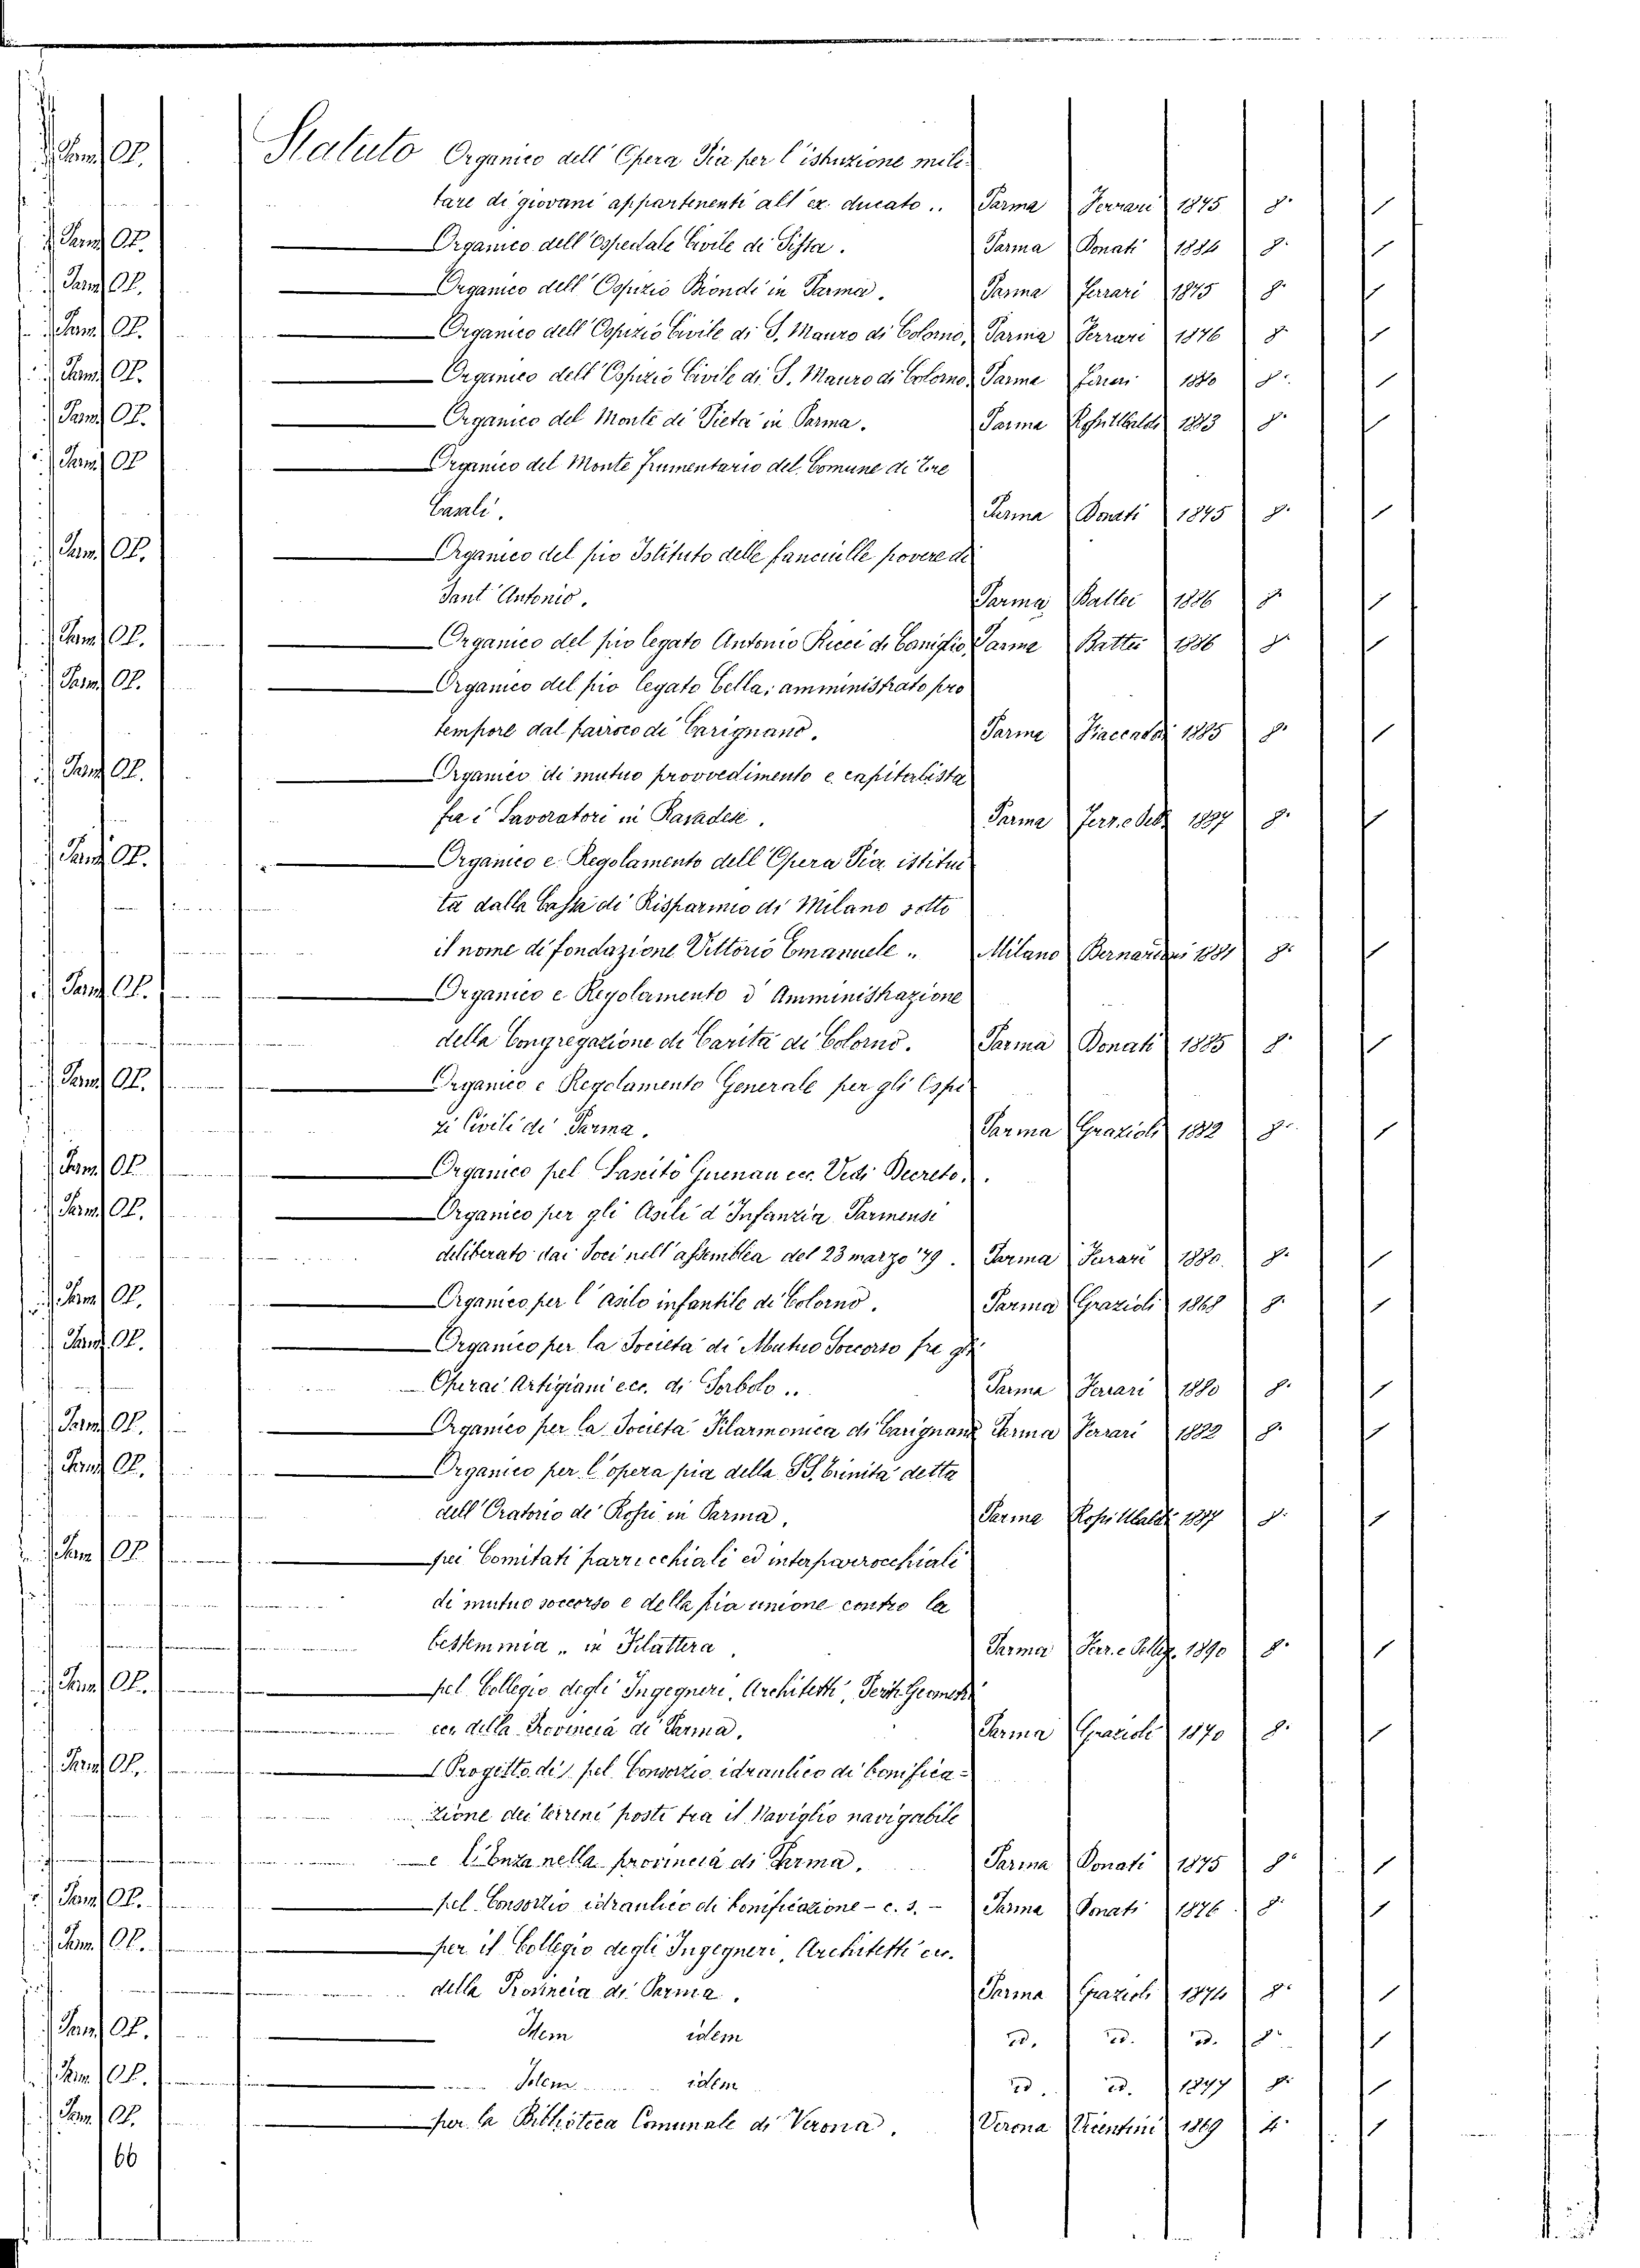 Parm. Op. Statuto Organico dell' Opera Pia per l'istruzione mili-
tare di giovani appartenenti all' ex. ducato.. Parma Ferrari 1875 8° 1
Parm. Op. — Organico dell' Ospedale Civile di Sissa. Parma Donati 1884 8° 1
Parm. Op. — Organico dell' Ospizio Biondi in Parma. Parma Ferrari 1875 8° 1
Parm. Op. — Organico dell' Ospizio Civile di S. Mauro di Colorno, Parma Ferrari 1876 8° 1
Parm. Op. — Organico dell' Ospizio Civile di S. Mauro di Colorno, Parma Ferrari 1880 8° 1
Parm. Op. — Organico del Monte di Pietà in Parma. Parma Rossi Ubaldi 1883 8° 1
Parm. Op — Organico del Monte frumentario del Comune di Tre
Casali. Parma Donati 1875 8° 1
Parm. Op. — Organico del pio Istituto delle fanciulle povere di
Sant' Antonio. Parma Battei 1886 8° 1
Parm. Op. — Organico del pio legato Antonio Ricci di Parma Battei 1886 8° 1
Parm. Op. — Organico del pio legato Cella, amministrato pro
tempore dal parroco di Carignano. Parma 1885 8° 1
Parm. Op. — Organico di mutuo provvedimento e capitalista
fra i Lavoratori in Ravadese. Parma Ferr. e 8° 1
Parm. Op. — Organico e Regolamento dell' Opera Pia istitui
ta dalla Cassa di Risparmio di Milano sotto
il nome di fondazione Vittorio Emanuele " Milano Bernardoni 1881 8° 1
Parm. Op. — Organico e Regolamento d' Amministrazione
della Congregazione di Carità di Colorno. Parma Donati 1885 8° 1
Parm. Op. — Organico e Regolamento Generale per gli Ospi
zi Civili di Parma. Parma Grazioli 1882 8° 1
Parm. Op — Organico pel Lascito Guenau ecc. Vedi Decreto.
Parm. Op. — Organico per gli Asili d' Infanzia Parmensi
deliberato dai Soci nell' assemblea del 23 marzo '79. Parma Ferrari 1880. 8° 1
Parm. Op. — Organico per l' asilo infantile di Colorno. Parma Grazioli 1868 8° 1
Parm. Op. — Organico per la Società di Mutuo Soccorso fra gli
Operai Artigiani ecc. di Sorbolo.. Parma Ferrari 1880 8° 1
Parm. Op. — Organico per la Società Filarmonica di Carignano Parma Ferrari 1882 8° 1
Parm. Op. — Organico per l' opera pia della SS. Trinità detta
dell' Oratorio de' Rossi in Parma. Parma Rossi Ubaldi 1887 8° 1
Parm. Op — pei Comitati parrocchiali ed interparrocchiali
di mutuo soccorso e della pia unione contro la
bestemmia " in Plattera. Parma Ferr. e Pelleg. 1890 8° 1
Parm. Op. — pel Collegio degli Ingegneri, Architetti, Periti Geometri
ecc. della Provincia di Parma. Parma Grazioli 1870 8° 1
Parm. Op. — (Progetto di) pel Consorzio idraulico di bonifica-
zione dei terreni posti tra il Naviglio navigabile
e l' Enza nella provincia di Parma. Parma Donati 1875 8° 1
Parm. Op. — pel Consorzio idraulico di bonificazione - c. s. - Parma Donati 1876 8° 1
Parm. Op. — per il Collegio degli Ingegneri, Architetti ecc.
della Provincia di Parma. Parma Grazioli 1874 8° 1
Parm. Op. — Idem idem id. id. id. 8° 1
Parm. Op. — Idem idem id. id. 1877 8° 1
Parm. Op. — per la Biblioteca Comunale di Verona. Verona Vicentini 1869 4° 1
66